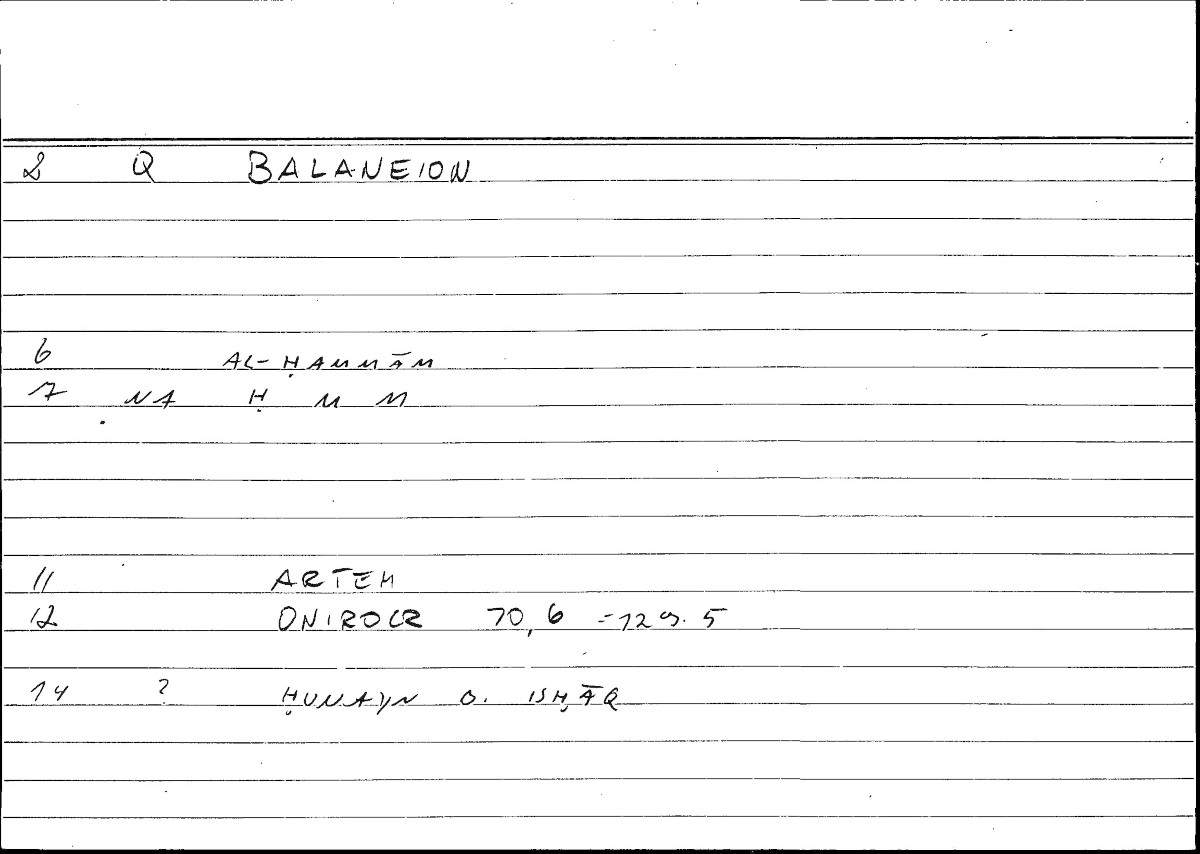 2 Q BALANEION
6 AL-ḤAMMĀM
7 NA Ḥ M M
11 ARTEM
12 ONIROCR 70,6 = 129.5
14 ? ḤUNAYN B. ISḤĀQ